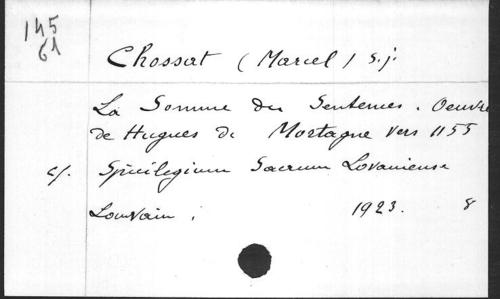 145
61
Chossat (Marcel) S.j.
La Somme des Sentences. Oeuvre
de Hugues de Mortagne vers 1155
c/. Spicilegium Sacrum Lovaniense
Louvain, 1923. 8